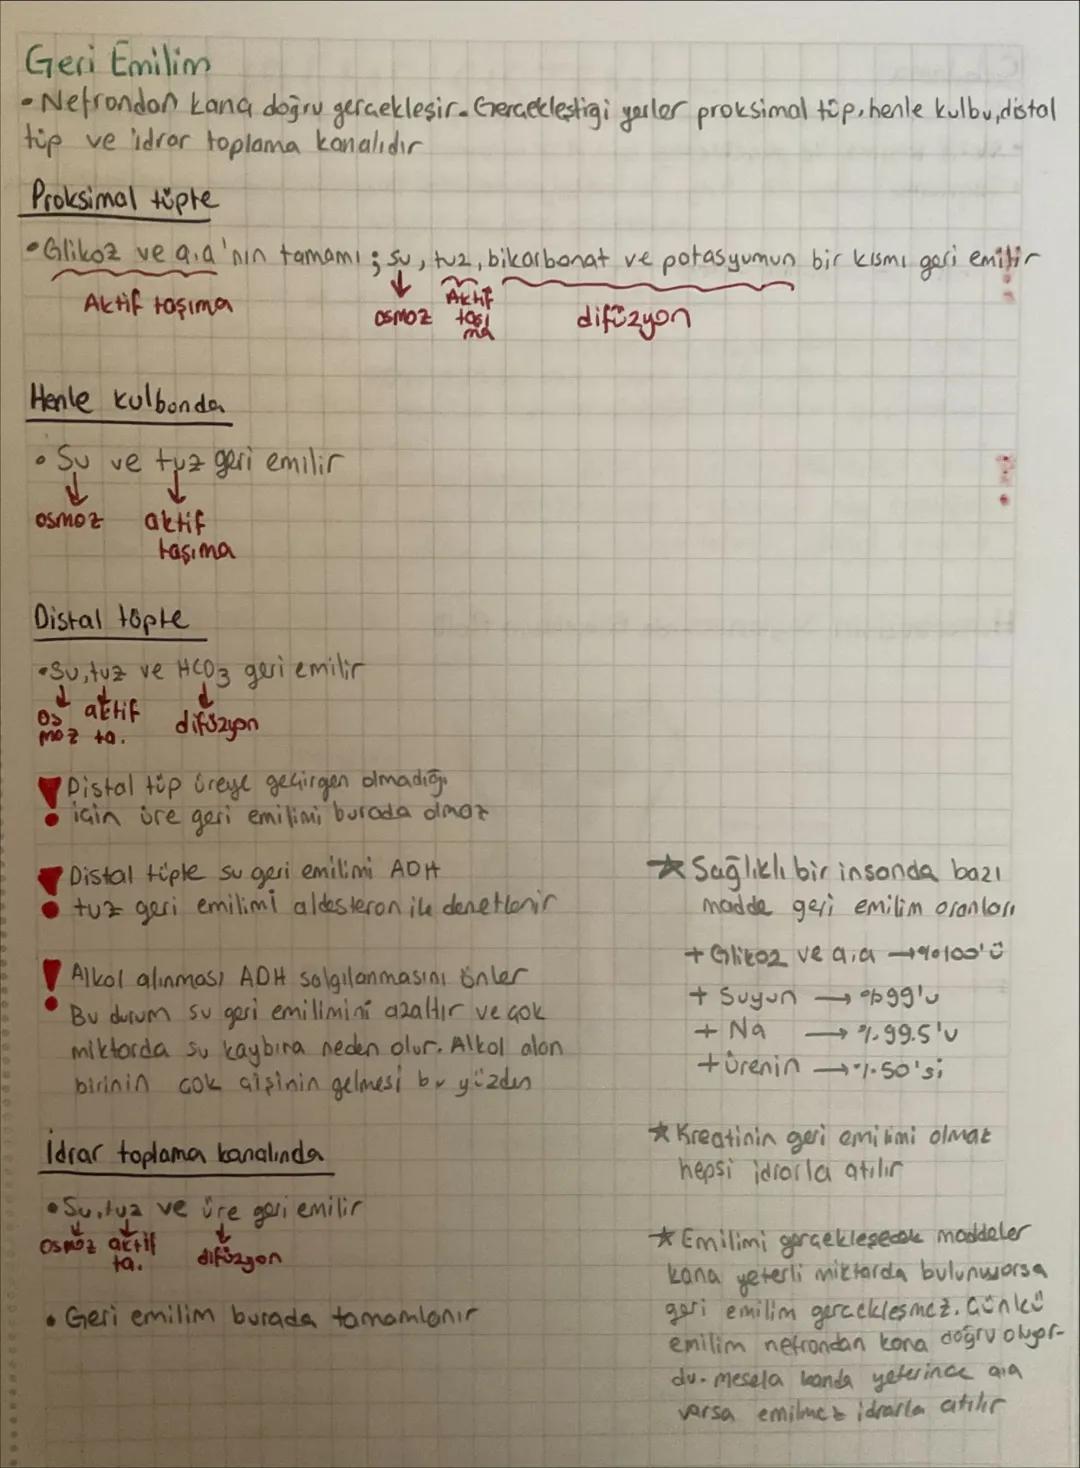 Geri Emilim
• Nefrondan kana doğru gerçekleşir. Gerçekleştiği yerler proksimal tüp, henle kulbu, distal
tüp ve idrar toplama kanalıdır
Proksimal tüpte
• Glikoz ve a.a'nın tamamı ; su, tuz, bikarbonat ve potasyumun bir kısmı geri emilir
Aktif taşıma
osmoz
Aktif
taşı
ma
difüzyon
Henle kulbunda
• Su ve tuz geri emilir
osmoz
aktif
taşıma
Distal tüpte
• Su, tuz ve HCO3 geri emilir
os
moz
aktif
ta.
difüzyon
! Distal tüp üreye geçirgen olmadığı
için üre geri emilimi burada olmaz
! Distal tüpte su geri emilimi ADH
tuz geri emilimi aldesteron ile denetlenir
! Alkol alınması ADH salgılanmasını önler
Bu durum su geri emilimini azaltır ve çok
miktarda su kaybına neden olur. Alkol alan
birinin çok çişinin gelmesi bu yüzden
İdrar toplama kanalında
• Su, tuz ve üre geri emilir
osmoz
aktif
ta.
difüzyon
• Geri emilim burada tamamlanır
★ Sağlıklı bir insanda bazı
madde geri emilim oranları
+ Glikoz ve a.a → %100'ü
+ Suyun → %99'u
+ Na → %99.5'u
+ Ürenin → %50'si
★ Kreatinin geri emilimi olmaz
hepsi idrarla atılır
★ Emilimi gerçekleşecek maddeler
kana yeterli miktarda bulunuyorsa
geri emilim gerçekleşmez. Çünkü
emilim nefrondan kana doğru oluyor-
du. Mesela kanda yeterince a.a
varsa emilmez idrarla atılır